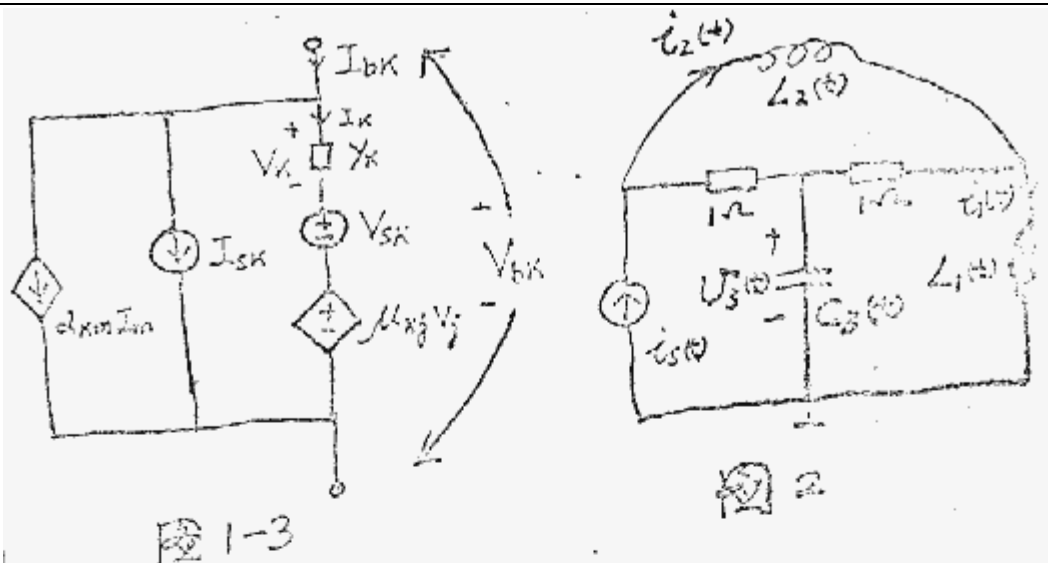 I_bK
I_K
+
V_K
Y_K
-
V_SK
I_SK
α_Km I_m
μ_Kj V_j
+
V_bK
-
图 1-3
i_2(t)
L_2(t)
1Ω
1Ω
i_1(t)
+
U_3(t)
-
C_3(t)
L_1(t)
i_s(t)
图 2